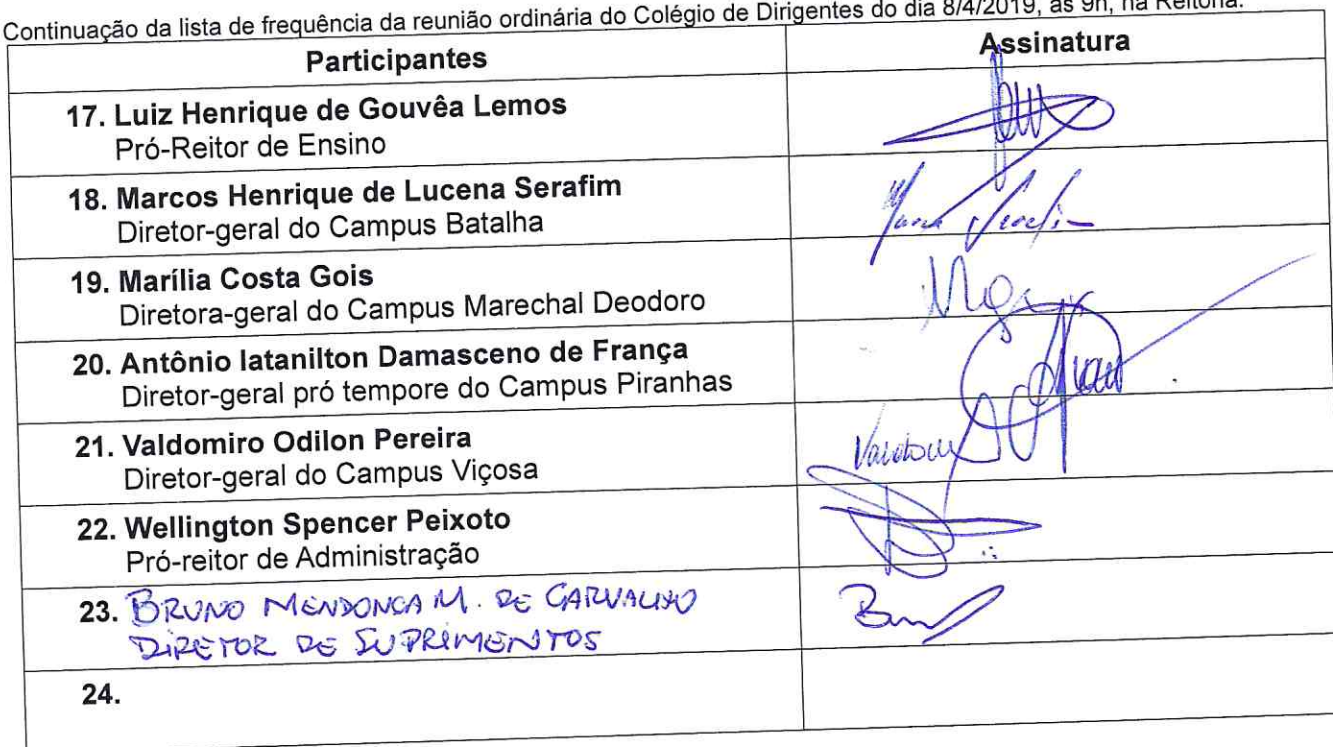 Continuação da lista de frequência da reunião ordinária do Colégio de Dirigentes do dia 8/4/2019, às 9h, na Reitoria.
Participantes Assinatura
17. Luiz Henrique de Gouvêa Lemos
Pró-Reitor de Ensino
18. Marcos Henrique de Lucena Serafim
Diretor-geral do Campus Batalha
19. Marília Costa Gois
Diretora-geral do Campus Marechal Deodoro
20. Antônio Iatanilton Damasceno de França
Diretor-geral pró tempore do Campus Piranhas
21. Valdomiro Odilon Pereira
Diretor-geral do Campus Viçosa
22. Wellington Spencer Peixoto
Pró-reitor de Administração
23. BRUNO MENDONCA M. DE CARVALHO
DIRETOR DE SUPRIMENTOS
24.